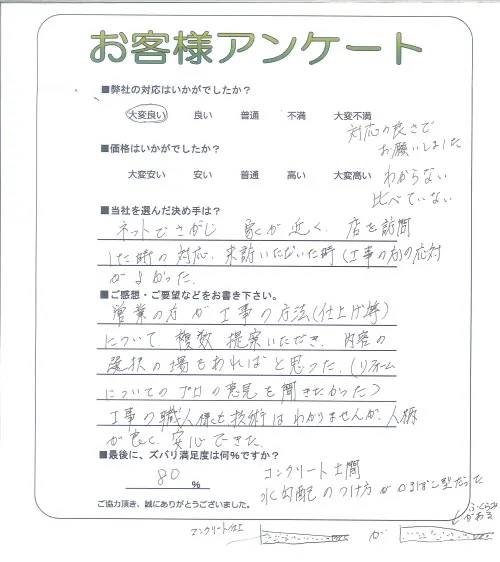 お客様アンケート
■弊社の対応はいかがでしたか？
大変良い 良い 普通 不満 大変不満
対応の良さで
お願いしました
■価格はいかがでしたか？
大変安い 安い 普通 高い 大変高い
わからない
比べていない
■当社を選んだ決め手は？
ネットでさがし 家が近く、店を訪問
した時の対応、来訪いただいた時(工事の方)の応対
がよかった。
■ご感想・ご要望などをお書き下さい。
営業の方が工事の方法(仕上げ等)
について、複数提案いただき、内容の
選択の場もあればと思った。(リフォーム
についてのプロの意見を聞きたかった)
工事の職人様も技術はわかりませんが、人柄
が良く、安心できた。
■最後に、ズバリ満足度は何％ですか？
80 %
コンクリート土間
水勾配のつけ方がかまぼこ型だった
ご協力頂き、誠にありがとうございました。
ふくらみ
がある
コンクリート
が